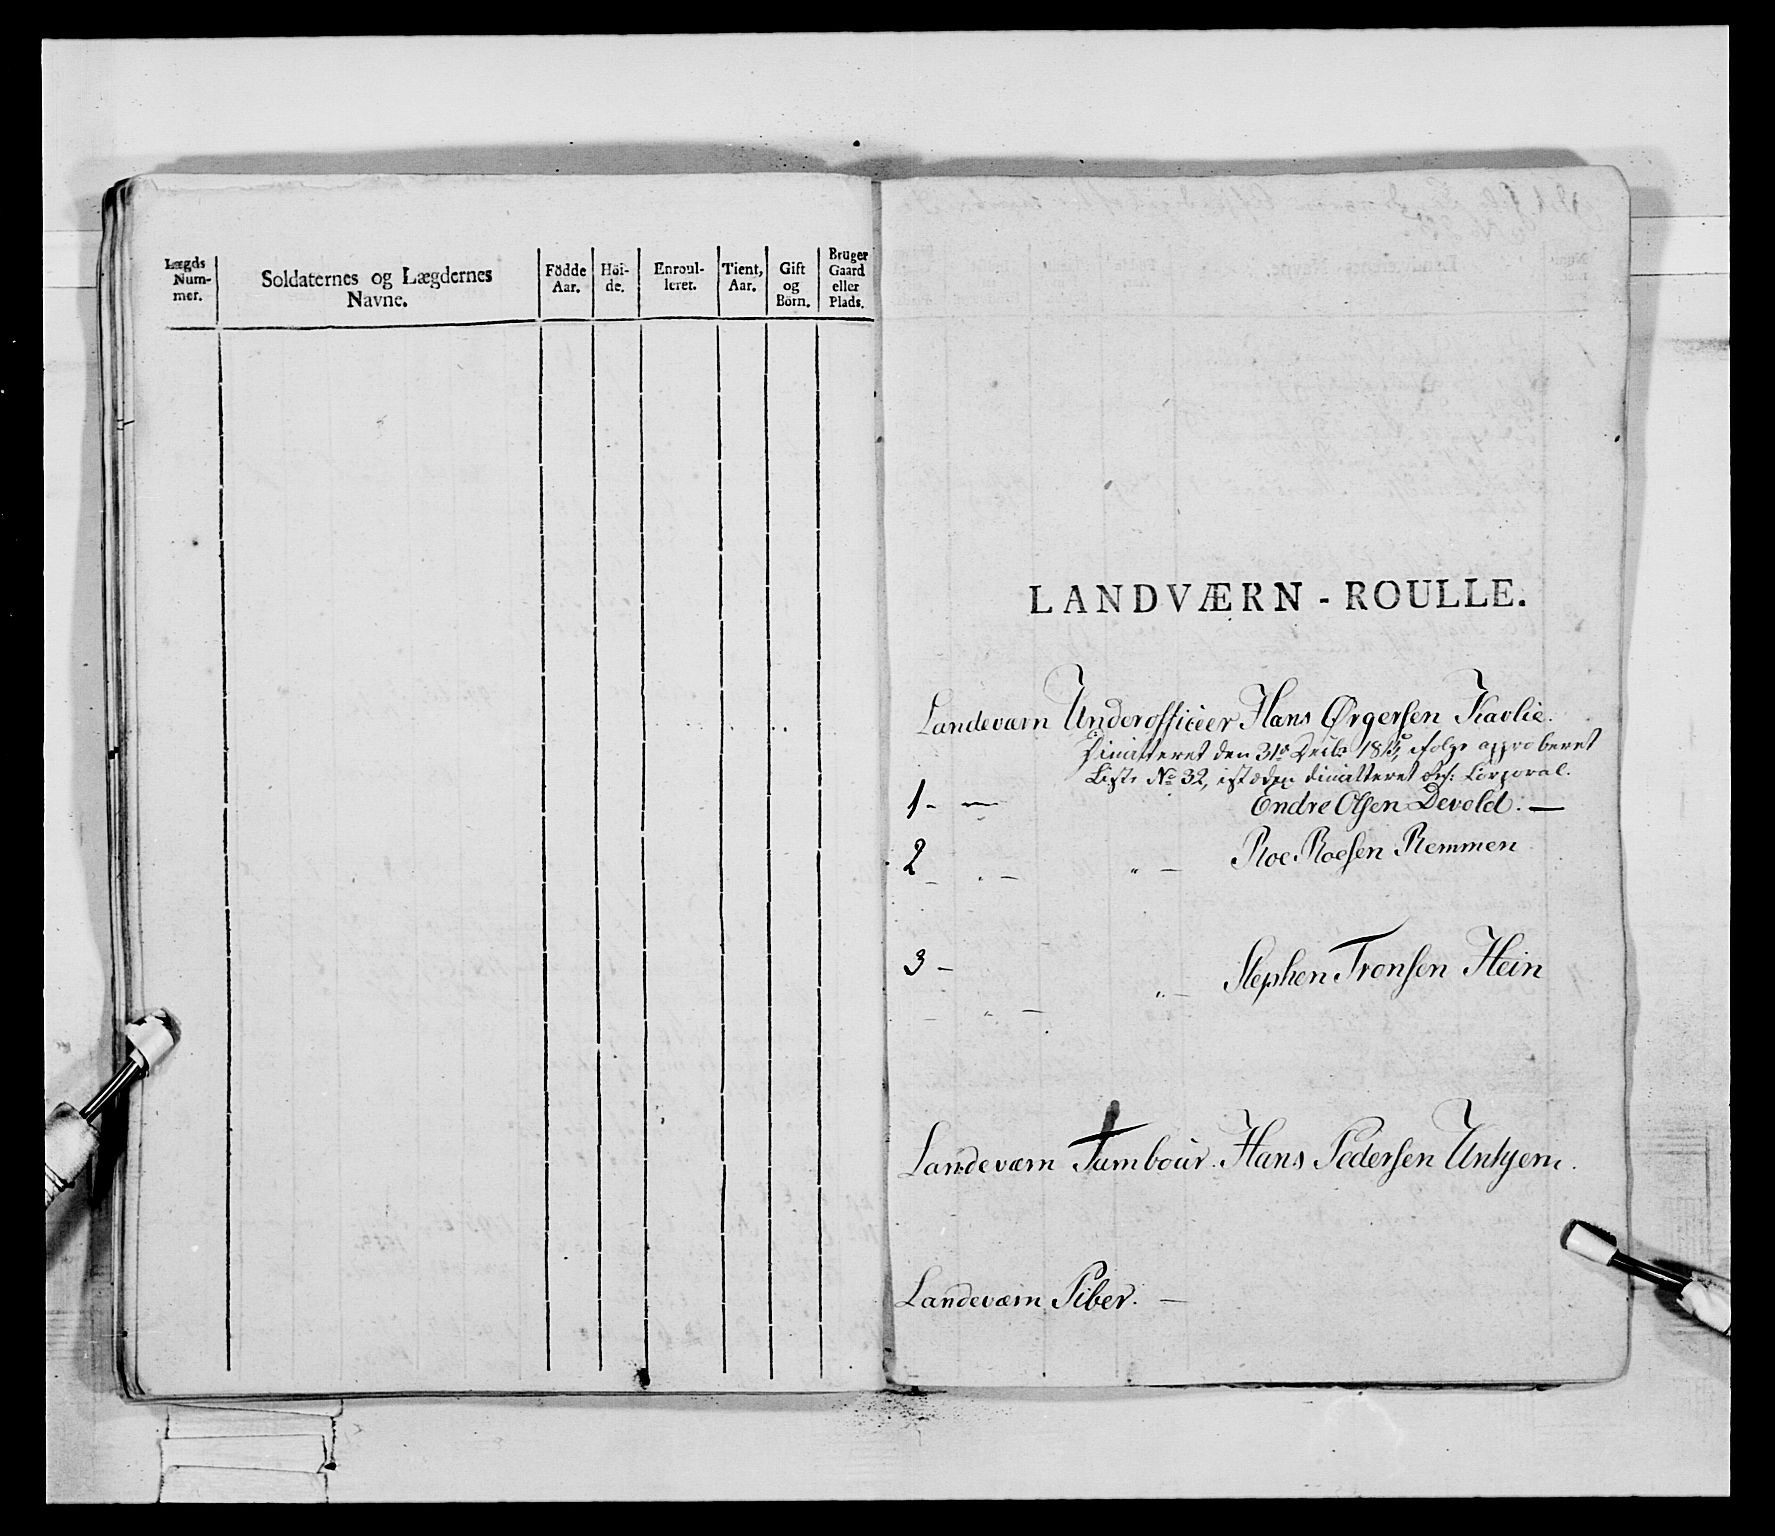 Lægds Num- mer.
Soldaternes og Lægdernes Navne.
Födde Aar.
Höi- de.
Enroul- leret.
Tient, Aar.
Gift og Börn.
Bruger Gaard eller Plads.
LANDVÆRN - ROULLE.
Landeværn Underofficeer Hans Ørgersen Kavlie.
Dimitteret den 31de Decbr 18 ifølge approberet
Liste No 32, istæden dimitteret Corporal.
1 - — Endre Olsen Devold. —
2 — „ — „ — Roe Roesen Remmen
3 — „ — Stephen Tronsen Hein
— „ —
Landeværn Tambour. Hans Pedersen Unhjem.
Landeværn Piber. —